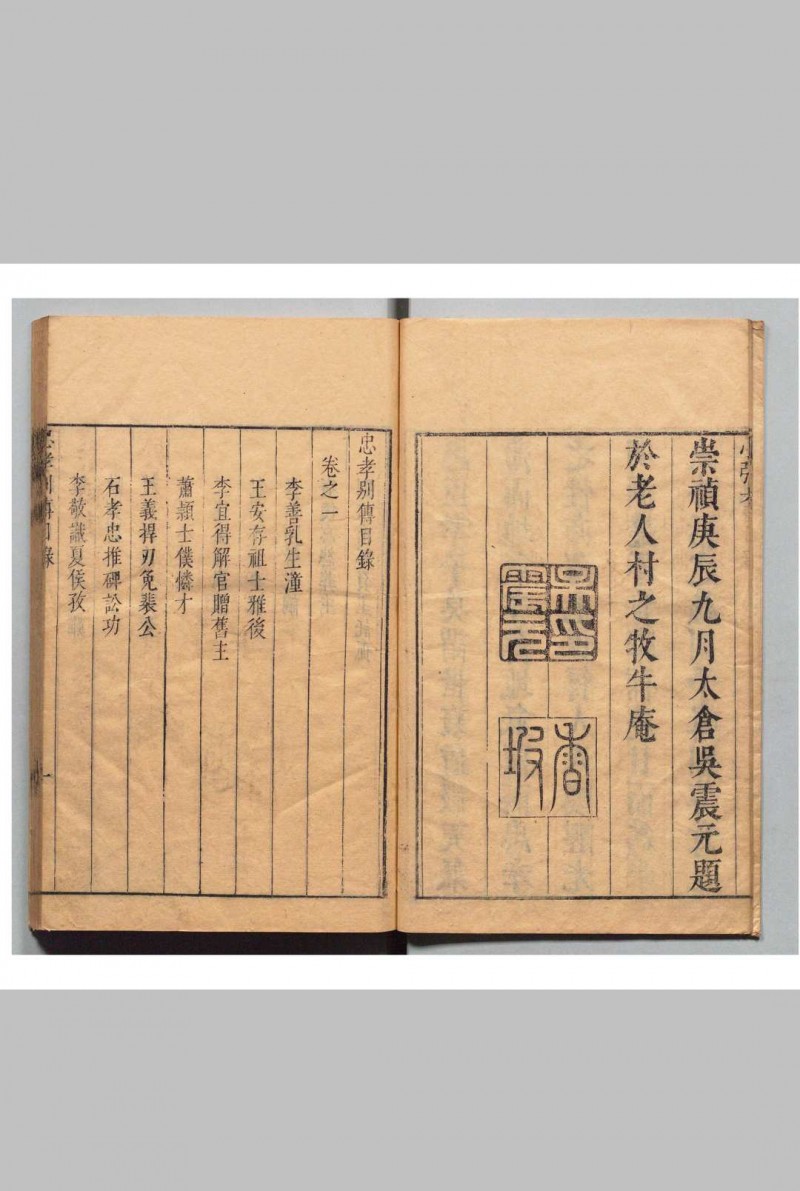 崇禎庚辰九月太倉吳震元題
於老人村之牧牛庵
吳印
震元
忠孝別傳目錄
卷之一
李善乳生潼
王安存祖士雅後
李宜得解官贈舊主
蕭頴士僕憐才
王義捍刃免裴公
石孝忠推碑訟功
李敬譏夏侯孜
忠孝別傳目錄
一